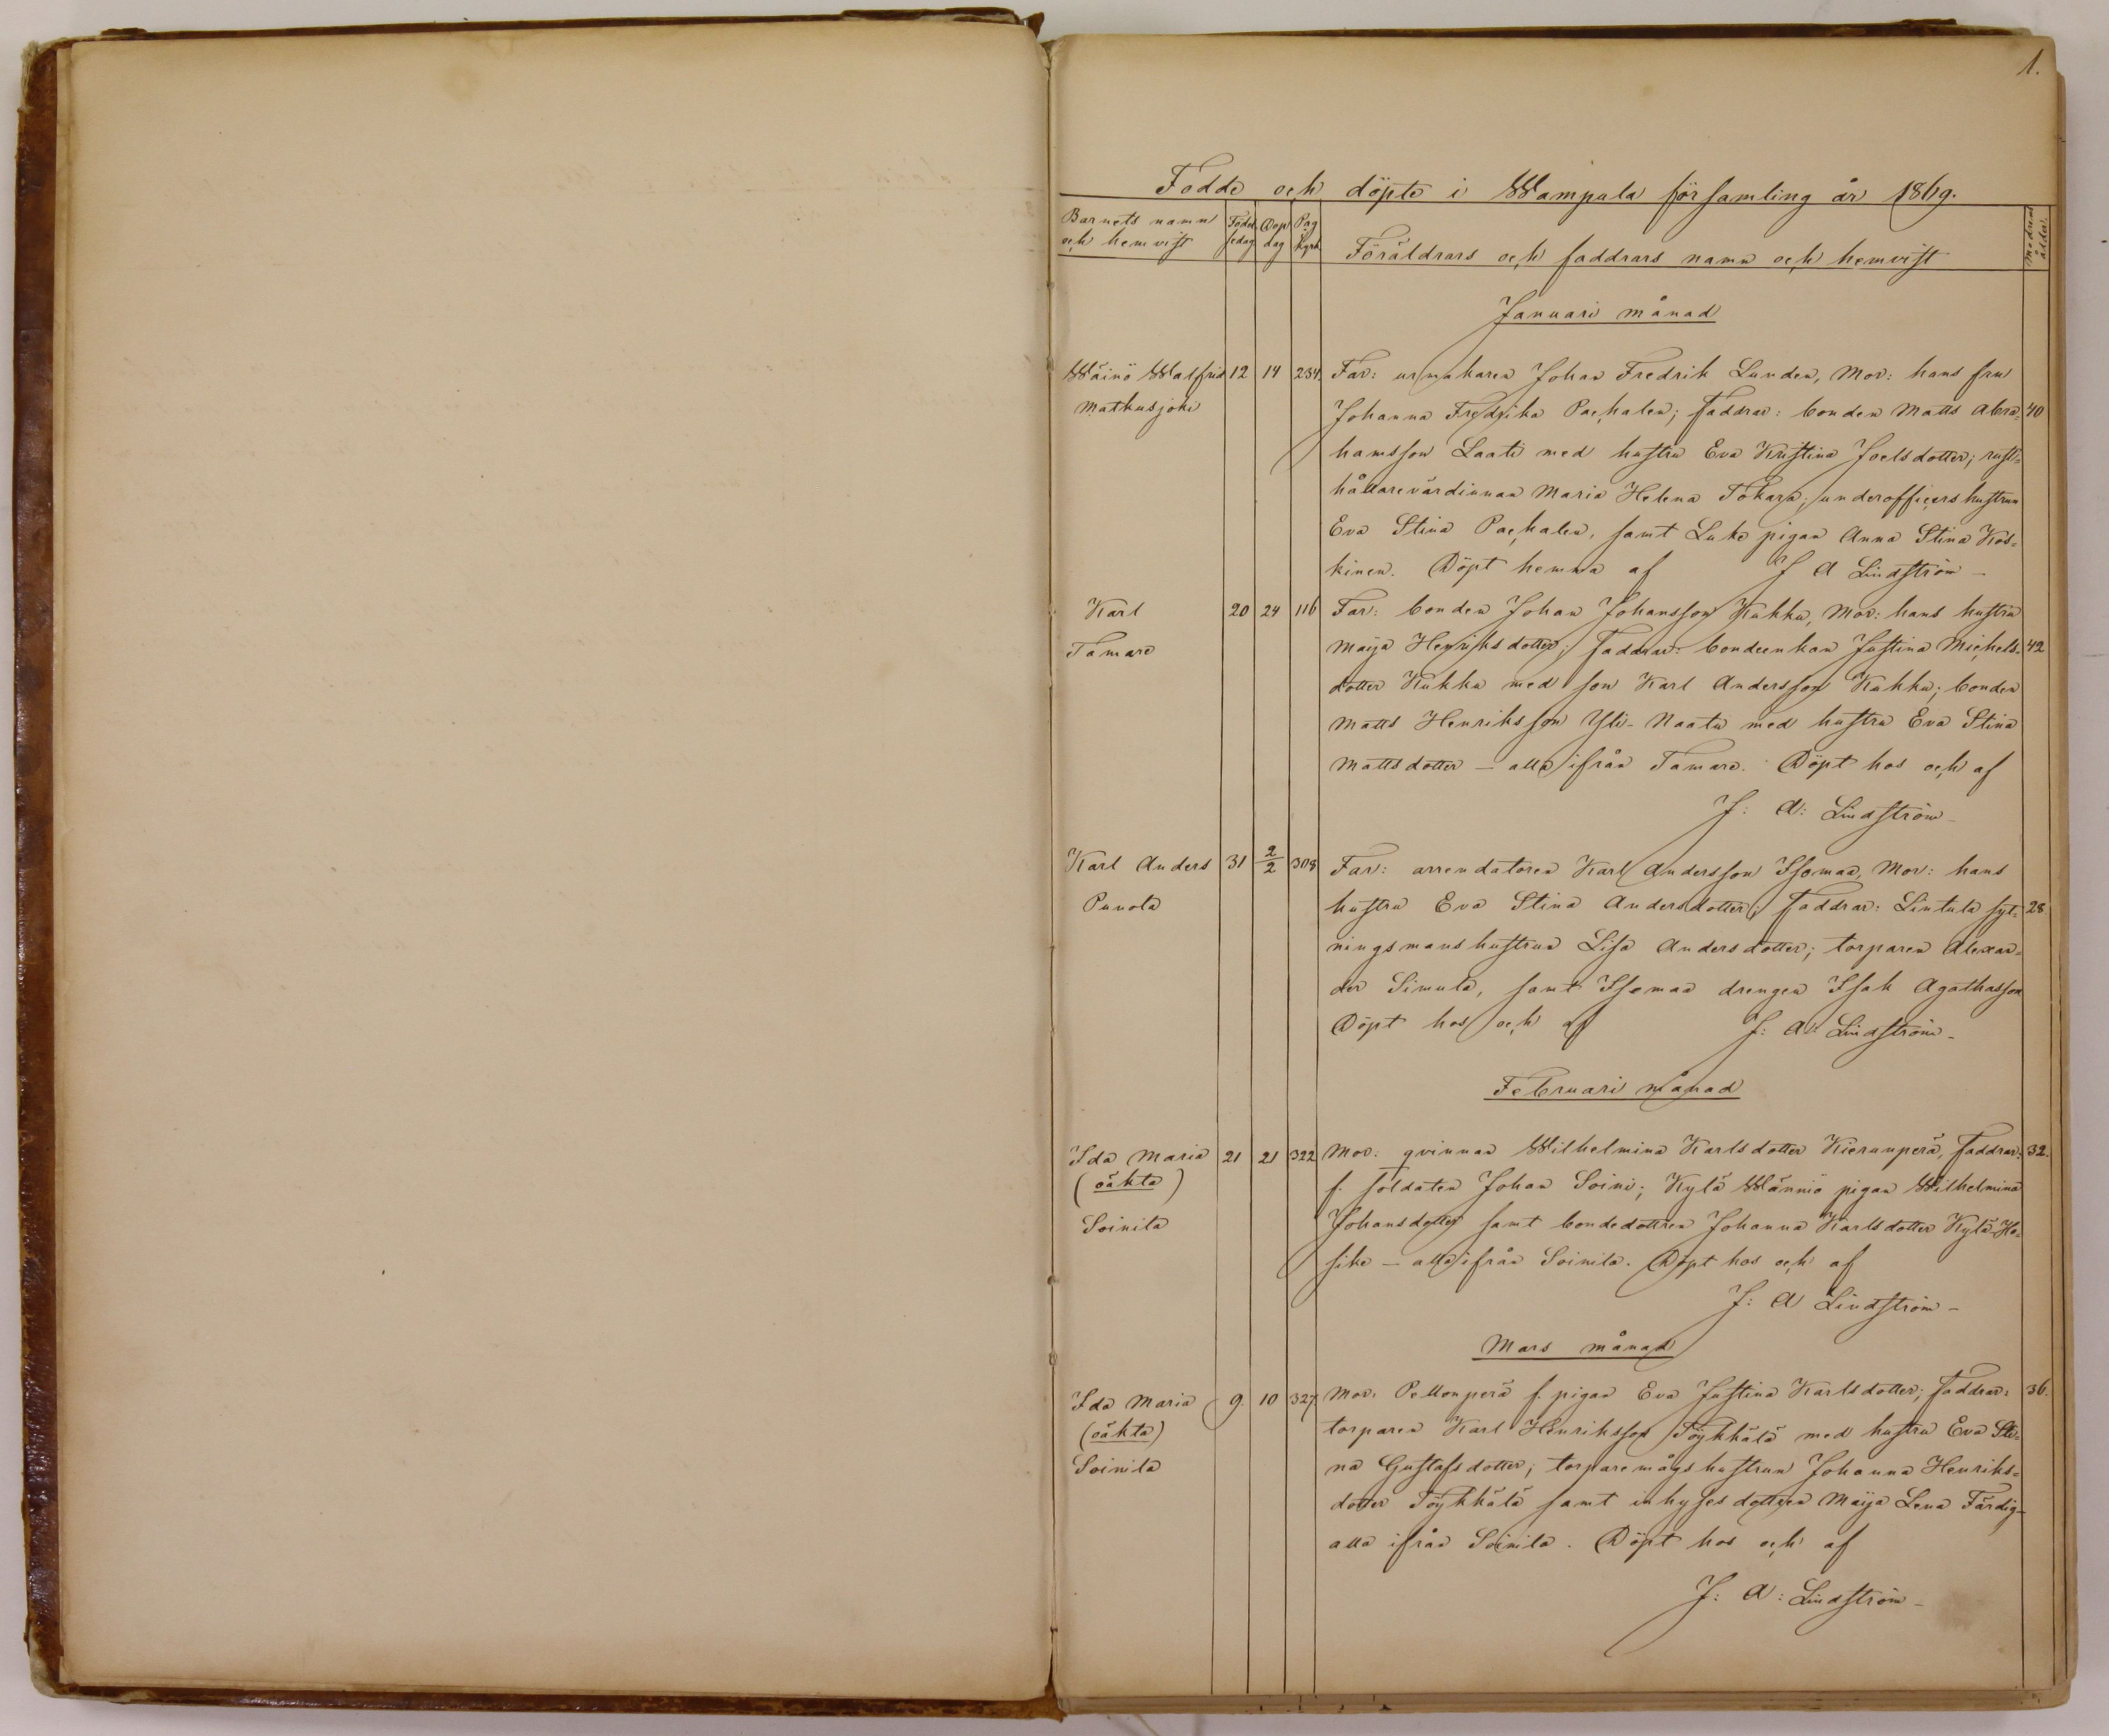 1.
Födde och döpte i Wampula församling år 1869.
Barnets namn och hemvist
Födel sedag
Dop dag
Pag Kyrk
Föräldrars och faddrars namn och hemvist
Modrens ålder.
Januari månad
Wäinö Walfrid 12 14 234. Far: urmakaren Johan Fredrik Lunden, Mor: hans fru
Matkusjoki Johanna Fredrika Pachalen; faddrar: bonden Matts Abra= 40
hamsson Laati med hustru Eva Kristina Joelsdotter; rust=
hållarevärdinnan Maria Helena Tokara; underofficers hustrun
Eva Stina Pachalen, samt Luke pigan Anna Stina Kos=
kinen. Döpt hemma af J A Lindström -
Karl 20 24 116 Far: bonden Johan Johansson Kukku, Mor: hans hustru
Tamare Maija Henriksdotter; faddrar: bondeenkan Justina Michels- 42
dotter Kukku med son Karl Andersson Kukku; bonden
Matts Henriksson Yli-Naatu med hustru Eva Stina
Mattsdotter - alla ifrån Tamare. Döpt hos och af
J: A: Lindström -
Karl Anders 31 2/2 308 Far: arrendatoren Karl Andersson Isomaa, Mor: hans
Punola hustru Eva Stina Andersdotter; faddrar: Lintula syt= 28
ningsmanshustrun Lisa Andersdotter; torparen Alexan=
der Simula, samt Isomaa drengen Isak Agathasson
Döpt hos och af J: A: Lindström -
Februari månad
Ida Maria 21 21 322 Mor: qvinnan Wilhelmina Karlsdotter Kierunperä, faddrar: 32.
(oäkta) f. soldaten Johan Soini; Kylä Wännie pigan Wilhelmina
Soinila Johansdotter samt bondedottren Johanna Karlsdotter Kylä-Ho=
sike - alla ifrån Soinila. Döpt hos och af
J: A Lindström -
Mars månad
Ida Maria 9. 10 327 Mor: Pellonperä f. pigan Eva Justina Karlsdotter; faddrar: 36.
(oäkta) torparen Karl Henriksson Töykkälä med hustru Eva Sti=
Soinila na Gustafsdotter; torparemågshustrun Johanna Henriks=
dotter Töykkälä samt inhysesdottren Maija Lena Färdig -
alla ifrån Soinila. Döpt hos och af
J: A: Lindström -